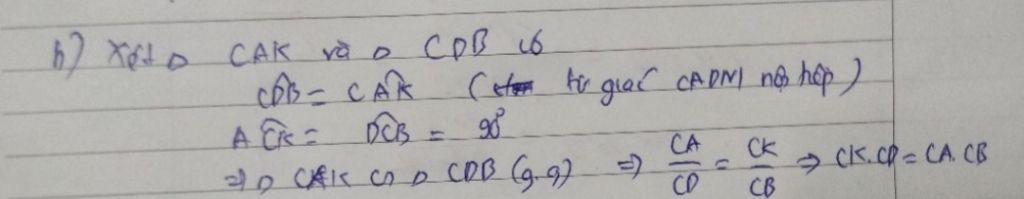 b) Xét △ CAK và △ CDB có
$\widehat{CDB} = \widehat{CAK}$ (tứ giác CADM nội hợp)
$A\widehat{CK} = \widehat{DCB} = 90^0$
⇒ △ CAK ∽ △ CDB (g.g) ⇒ $\frac{CA}{CD} = \frac{CK}{CB}$ ⇒ CK.CD = CA.CB